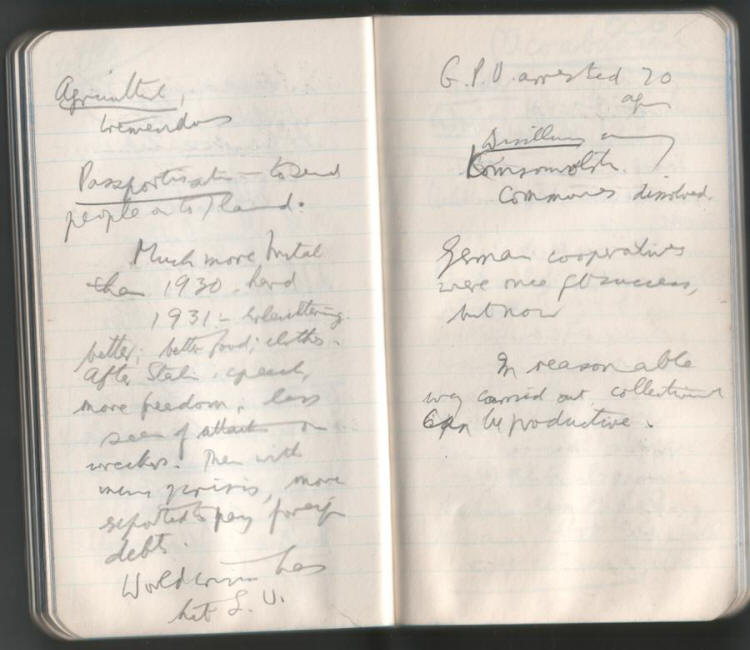 Agricultul,
tremendous
Passportisatn — to send
people onto land.
Much more brutal
than 1930. hard
1931 –
better; better food; clothes.
After Stalin speech,
more freedom, less
seen of attack on
wreckers. Then with
crisis, more
exported to pay foreign
debts.
World crisis has
hit S. U.
G.P.U. arrested 20
agr
Disillusn among
Komsomolsk.
Communes dissolved.
German cooperatives
were once gt success,
but now
In reasonable
way carried out, collectivn
can be productive.